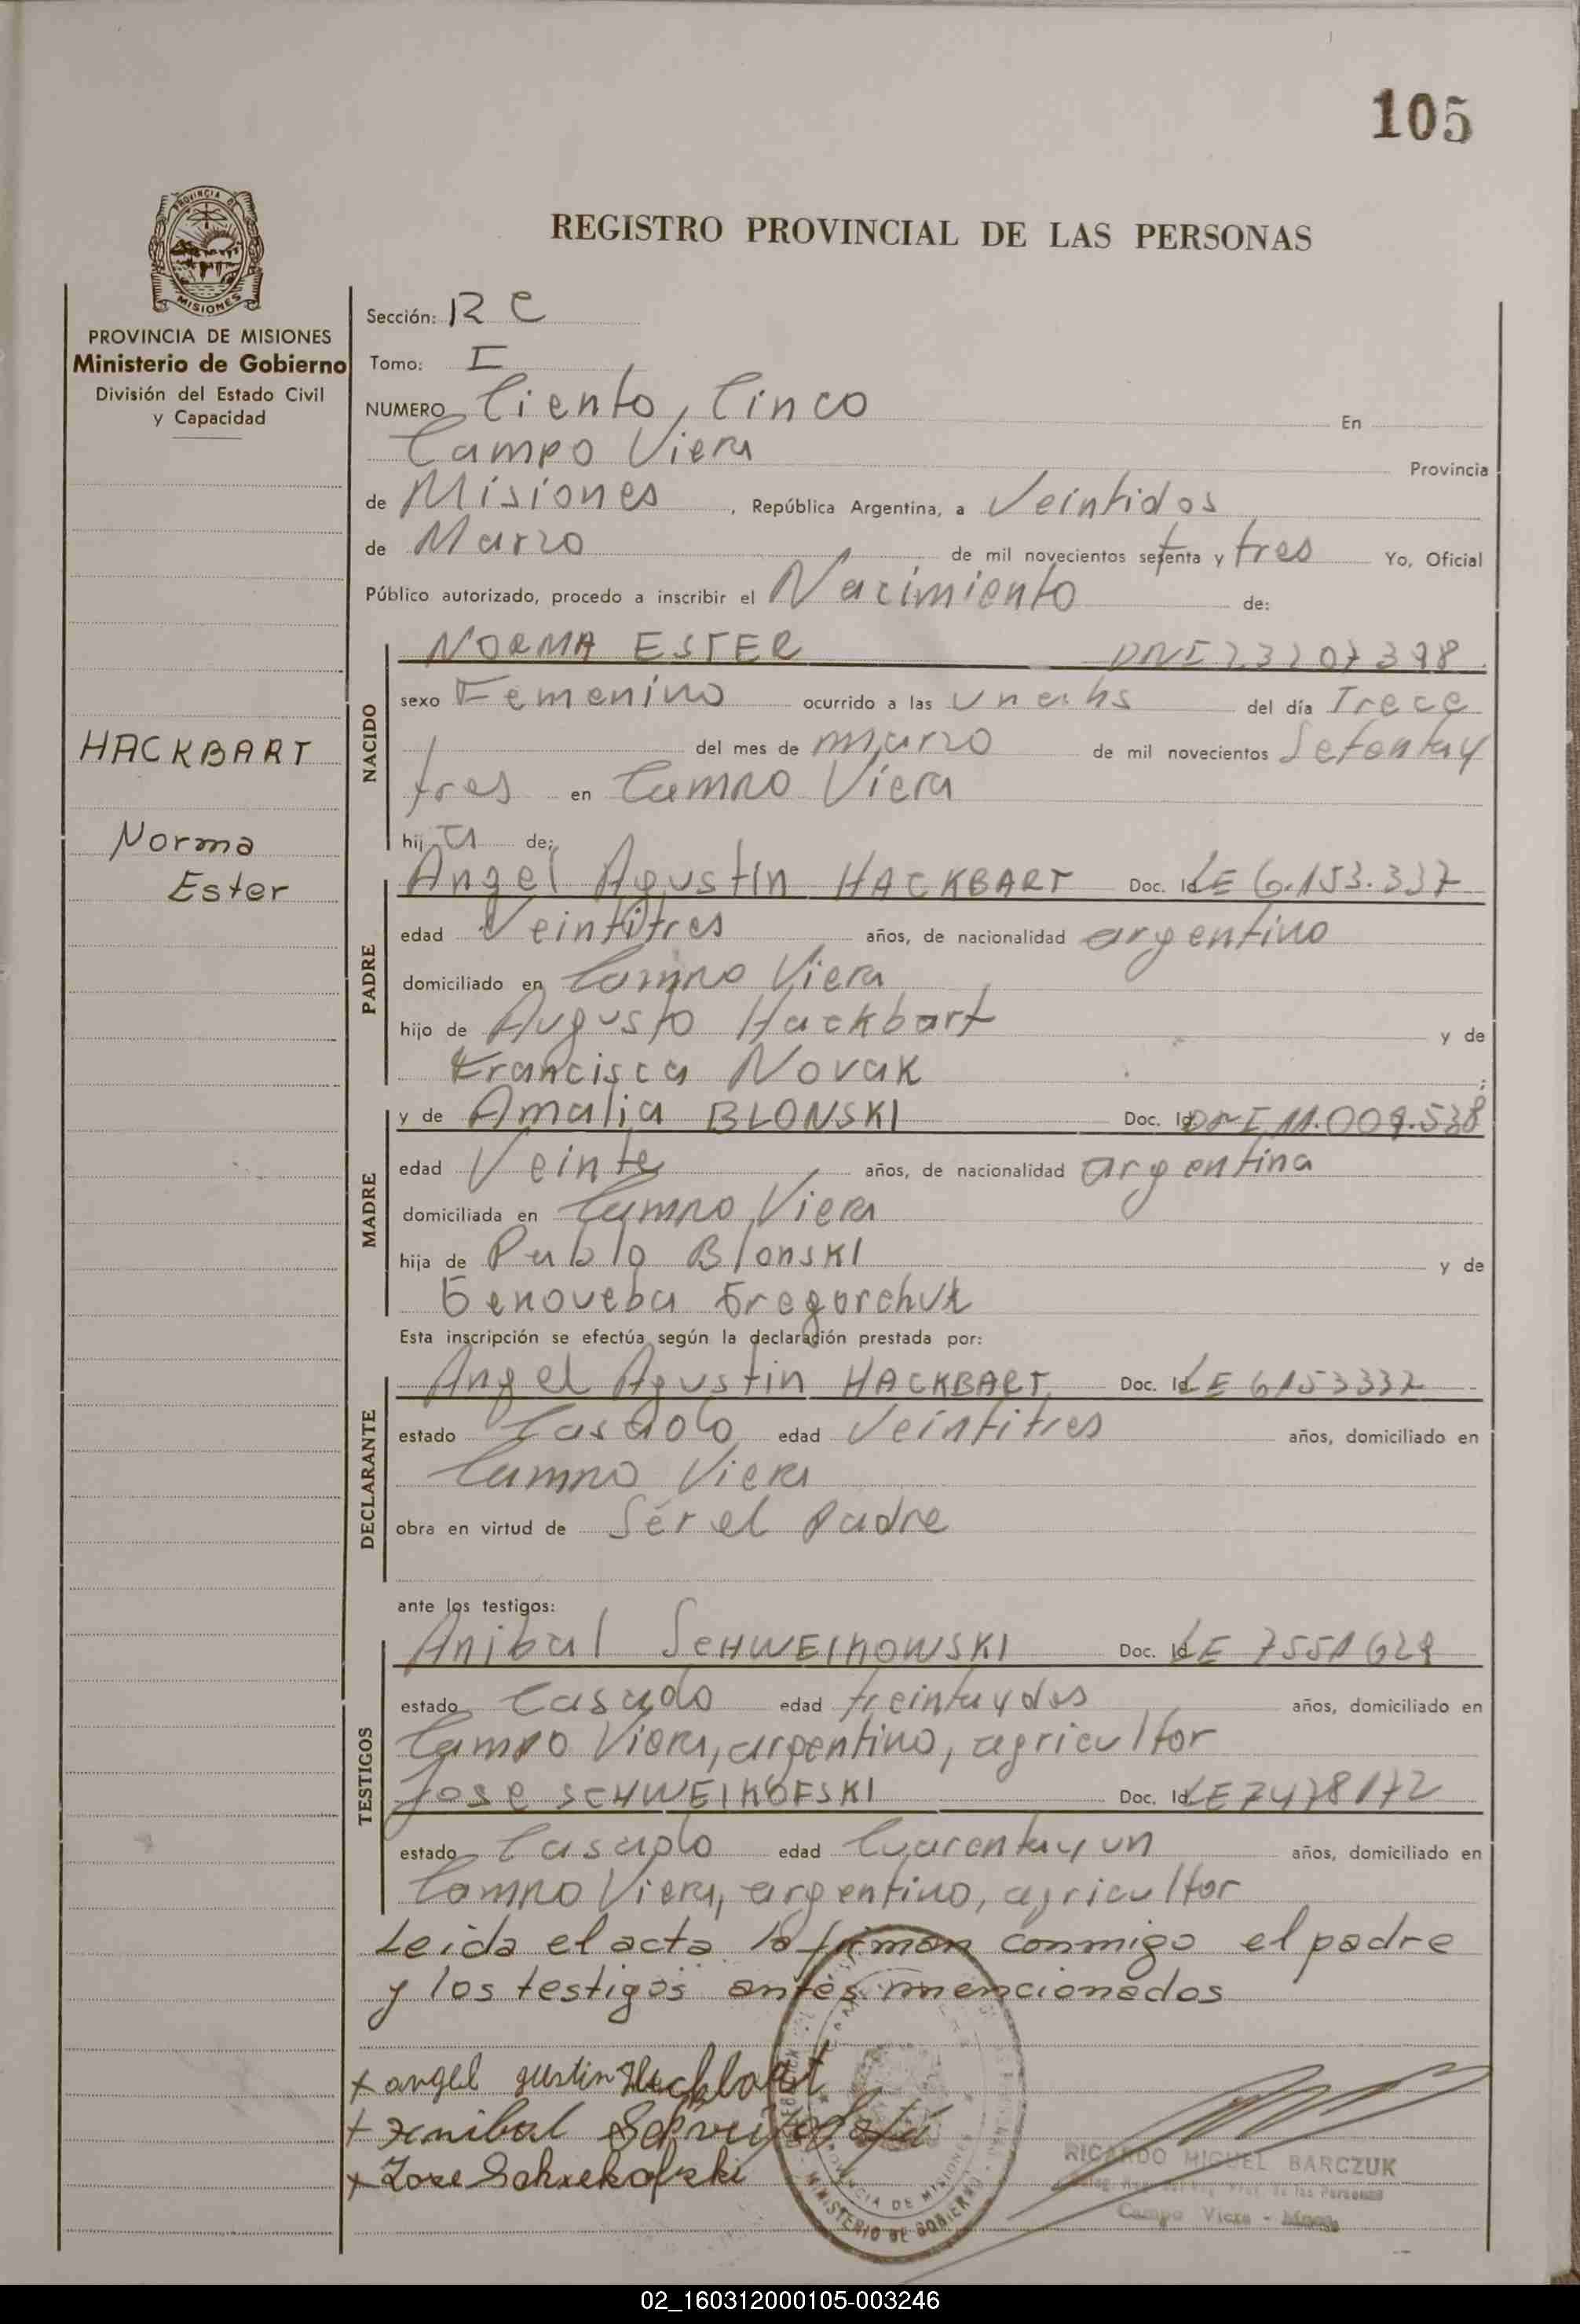 105
PROVINCIA DE
MISIONES
PROVINCIA DE MISIONES
Ministerio de Gobierno
División del Estado Civil
y Capacidad
HACKBART
Norma
Ester
REGISTRO PROVINCIAL DE LAS PERSONAS
Sección: RC
Tomo: I
NUMERO Ciento, Cinco En
Campo Viera Provincia
de Misiones, República Argentina, a Veintidos
de Marzo de mil novecientos setenta y tres Yo, Oficial
Público autorizado, procedo a inscribir el Nacimiento de:
NACIDO
NORMA ESTER DNI 23207398
sexo Femenino ocurrido a las una hs del día Trece
del mes de marzo de mil novecientos Setenta y
tres en Campo Viera
hija de:
PADRE
Angel Agustin HACKBART Doc. Id. LE 6.153.337
edad Veintitres años, de nacionalidad argentino
domiciliado en Campo Viera
hijo de Augusto Hackbart y de
Francisca Novak ;
MADRE
y de Amalia BLONSKI Doc. Id. DNI 11.009.538
edad Veinte años, de nacionalidad argentina
domiciliada en Campo Viera
hija de Pablo Blonski y de
Genoveba Gregorchuk
Esta inscripción se efectúa según la declaración prestada por:
DECLARANTE
Angel Agustin HACKBART Doc. Id. LE 6153337
estado Casado edad Veintitres años, domiciliado en
Campo Viera
obra en virtud de Ser el Padre
ante los testigos:
TESTIGOS
Anibal SCHWEIKOWSKI Doc. Id. LE 7551629
estado Casado edad treinta y dos años, domiciliado en
Campo Viera, argentino, agricultor
Jose SCHWEIKOFSKI Doc. Id. LE 7478172
estado Casado edad Cuarenta y un años, domiciliado en
Campo Viera, argentino, agricultor
Leida el acta la firman conmigo el padre
y los testigos antes mencionados
x angel gustin Hackbart
x Anibal
x Jose
PROVINCIA DE MISIONES
MINISTERIO DE GOBIERNO
RICARDO MIGUEL BARCZUK
de las Personas
Campo Viera - Mnes.
02_160312000105-003246